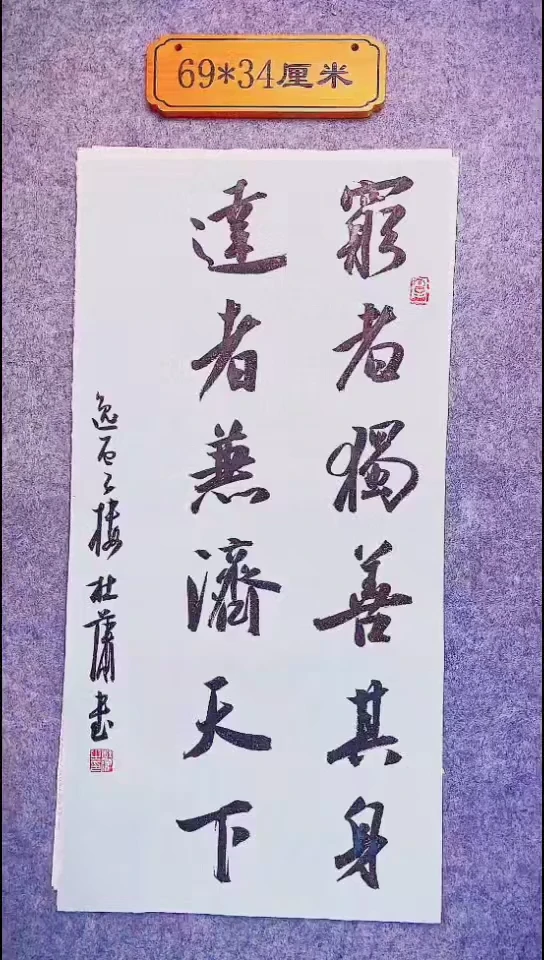 69*34厘米
窮者獨善其身
達者兼濟天下
逸石山樓杜蒲書